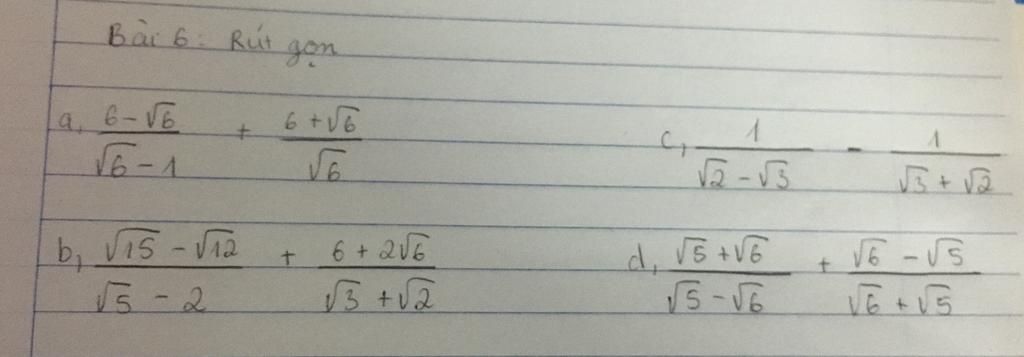 Bài 6: Rút gọn
a, (6 - √6)/(√6 - 1) + (6 + √6)/√6
c, 1/(√2 - √3) - 1/(√3 + √2)
b, (√15 - √12)/(√5 - 2) + (6 + 2√6)/(√3 + √2)
d, (√5 + √6)/(√5 - √6) + (√6 - √5)/(√6 + √5)